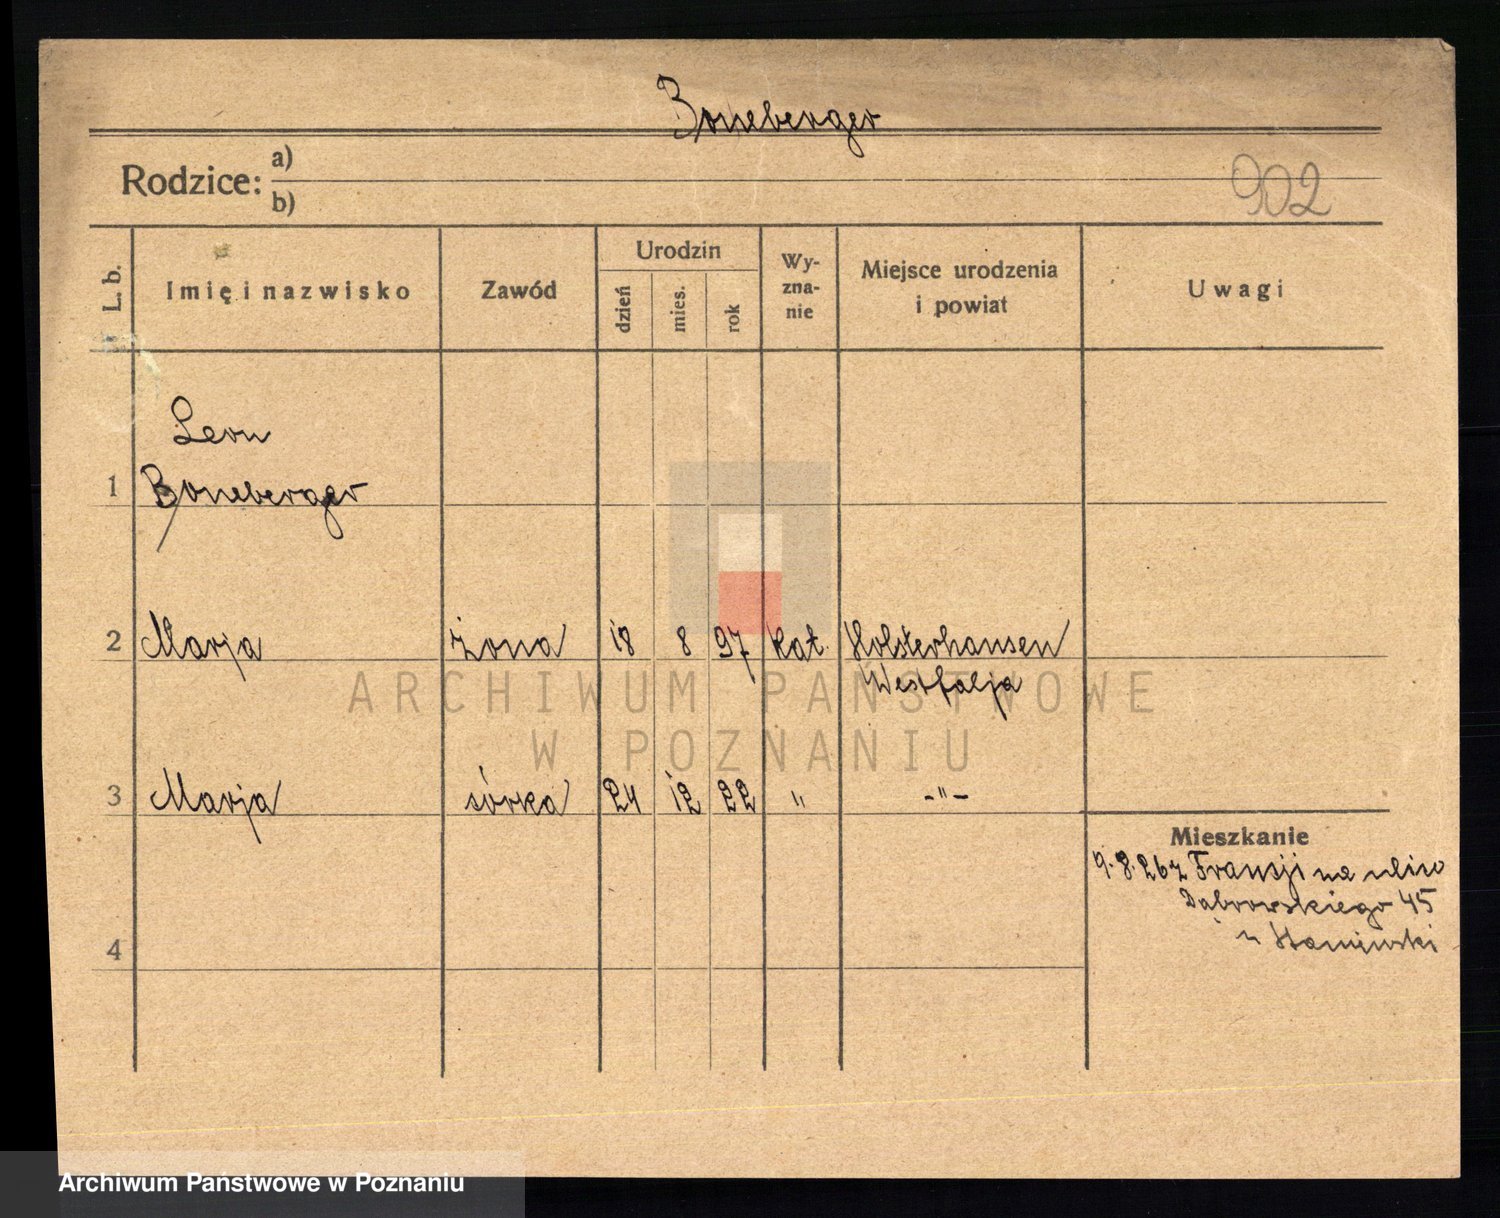 Boneberger
Rodzice: a)
b)
902
L. b.
Imię i nazwisko
Zawód
Urodzin
dzień
mies.
rok
Wy-
zna-
nie
Miejsce urodzenia
i powiat
Uwagi
Leon
1 Boneberger
2 Marja żona 18 8 97 kat. Holsterhausen
Westfalja
ARCHIWUM PAŃSTWOWE
W POZNANIU
3 Marja córka 24 12 22 " -"-
Mieszkanie
9.8.26 z Francji na ulicę
Dąbrowskiego 45
4
Archiwum Państwowe w Poznaniu